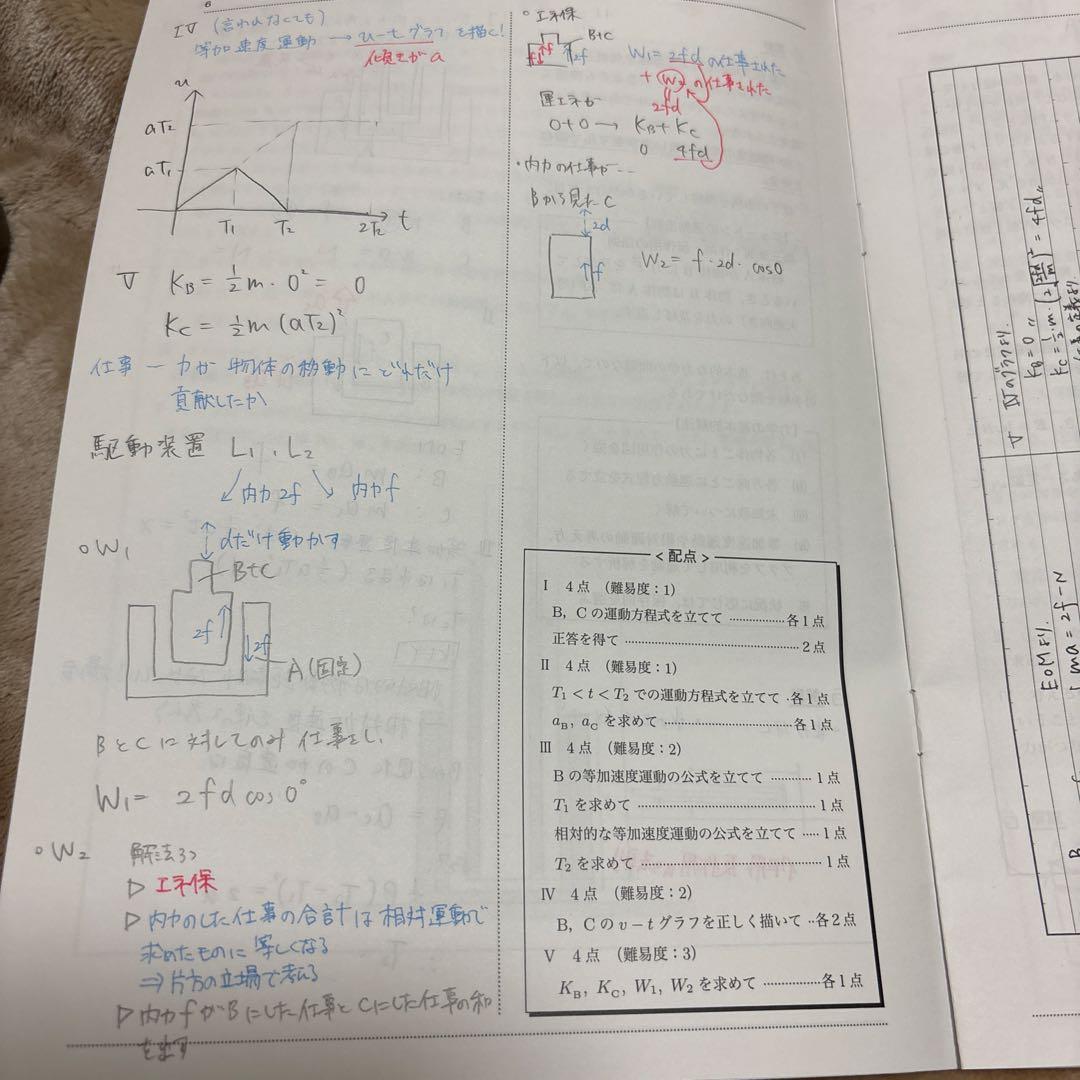 6
IV (言われなくても)
等加速度運動 → v-tグラフを描く!
傾きがa
v
aT₂
aT₁
T₁ T₂ 2T₂ t
V K_B = 1/2 m・0² = 0
K_C = 1/2 m (aT₂)²
仕事 ー 力が物体の移動にどれだけ
貢献したか
駆動装置 L₁、L₂
内力2f 内力f
○W₁ dだけ動かす
B+C
2f 2f
A(固定)
BとCに対してのみ仕事をし、
W₁ = 2fd cos 0°
○W₂ 解法3つ
▷ エネ保
▷ 内力のした仕事の合計は相対運動で
求めたものに等しくなる
⇒片方の立場で考える
▷ 内力fがBにした仕事とCにした仕事の和
○エネ保
B+C
f f 2f
W₁ = 2fdの仕事された
+ W₂の仕事された
2fd
運エネが
0+0 → K_B + K_C
0 4fd
・内力の仕事が--
Bから見たC
2d
f
W₂ = f・2d・cos0
<配点>
I 4点 (難易度:1)
B,Cの運動方程式を立てて ……………各1点
正答を得て ……………2点
II 4点 (難易度:1)
T₁<t<T₂での運動方程式を立てて ‥各1点
a_B, a_Cを求めて ……………各1点
III 4点 (難易度:2)
Bの等加速度運動の公式を立てて …………1点
T₁を求めて ……………1点
相対的な等加速度運動の公式を立てて ……1点
T₂を求めて ……………1点
IV 4点 (難易度:2)
B,Cのv−tグラフを正しく描いて ‥各2点
V 4点 (難易度:3)
K_B, K_C, W₁, W₂を求めて ……………各1点
V IVのグラフより、
K_B = 0〃
EoMより、
ma = 2f - N